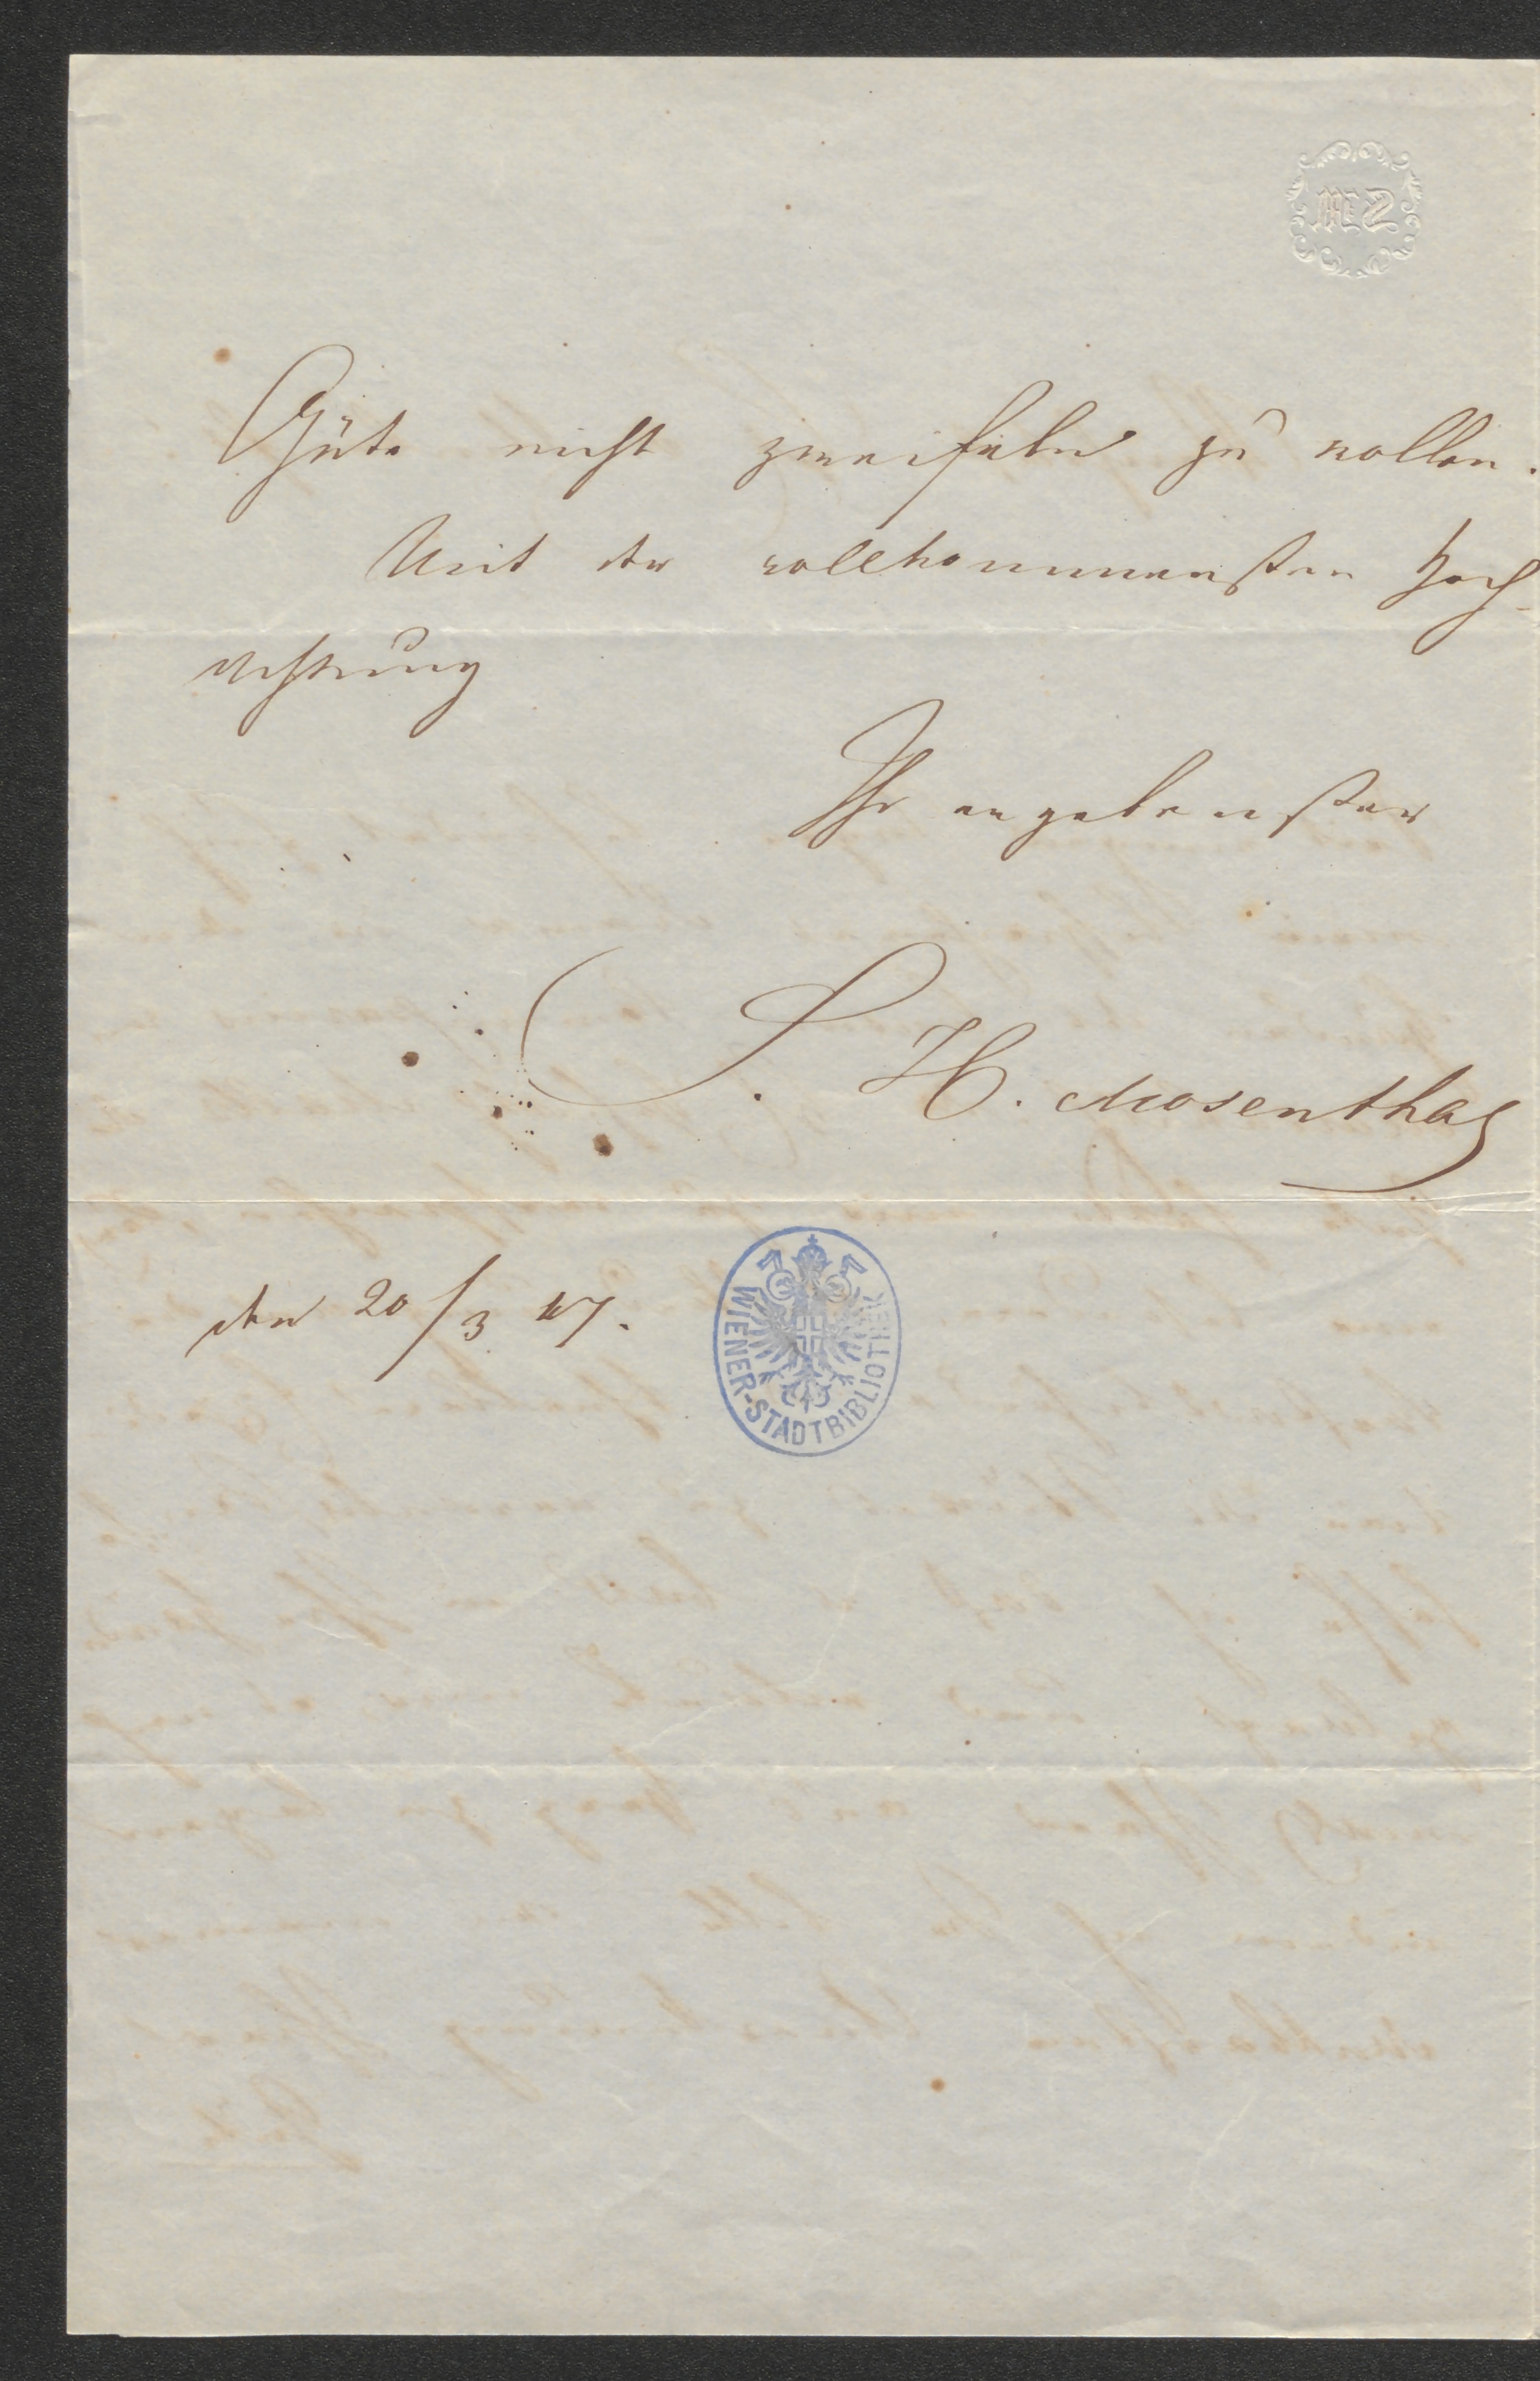 Güte nicht zweifeln zu wollen.
Mit der vollkommensten Hoch-
achtung
Ihr ergebenster
S. H. Mosenthal
den 20/3 47.
WIENER-STADTBIBLIOTHEK